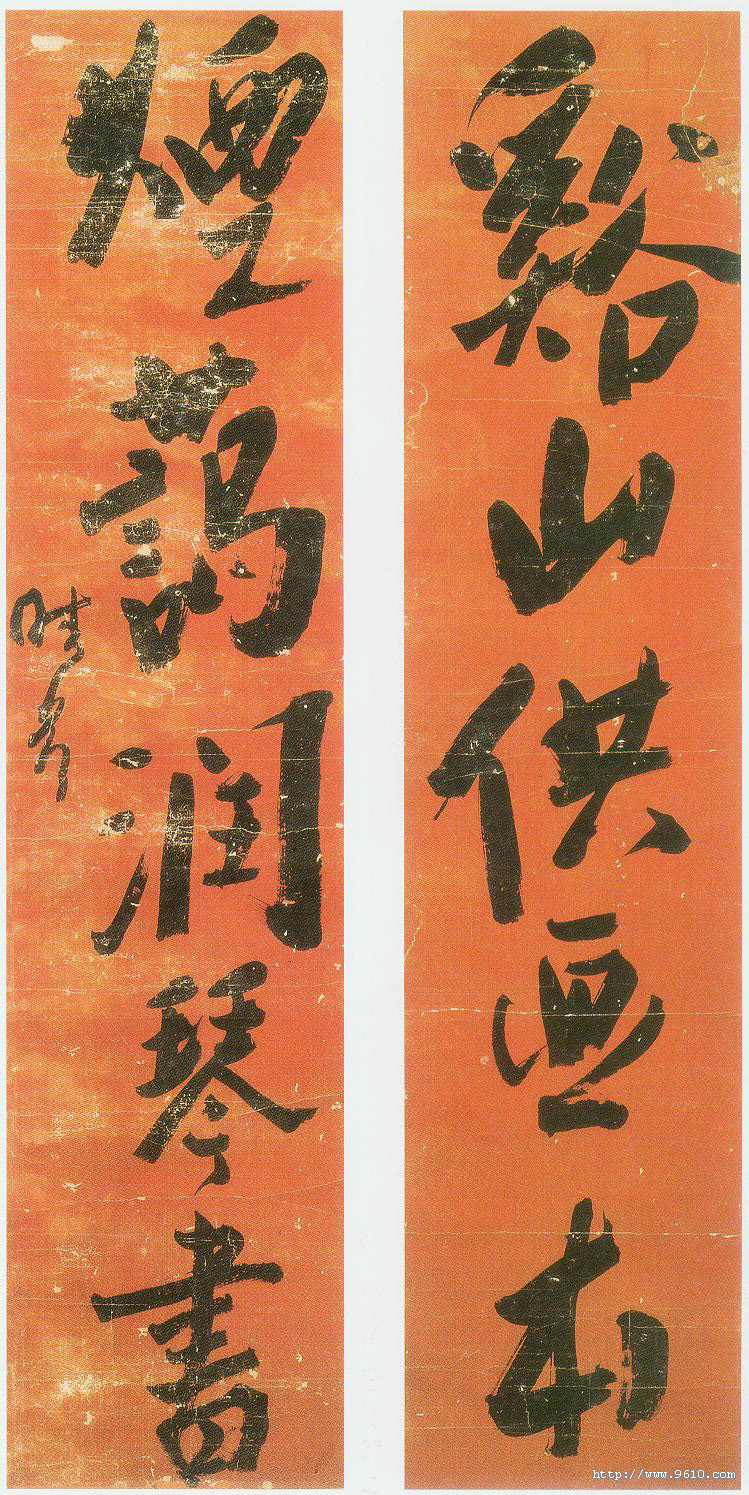 谿山供画本
煙藹润琴書
http://www.9610.com